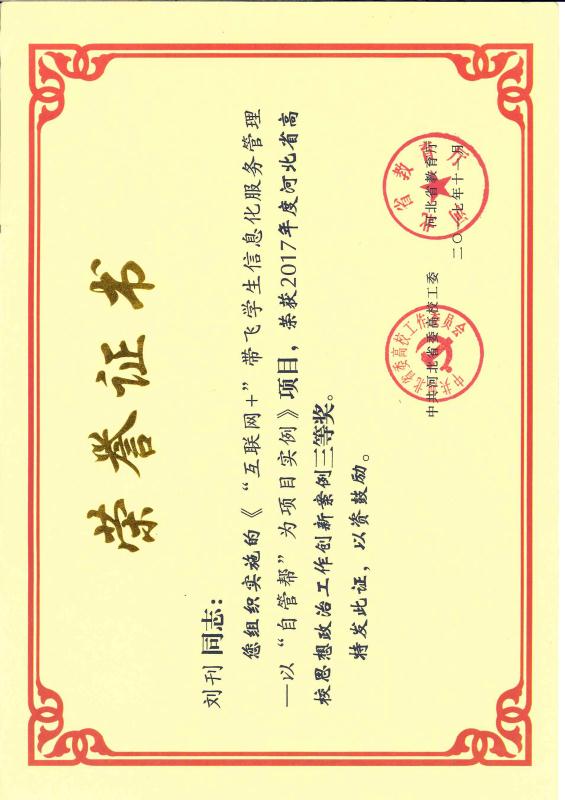 荣誉证书
刘刊同志：
您组织实施的《“互联网+”带飞学生信息化服务管理
—以“自管帮”为项目实例》项目，荣获2017年度河北省高
校思想政治工作创新案例三等奖。
特发此证，以资鼓励。
中共河北省委高校工委 河北省教育厅
二〇一七年十一月